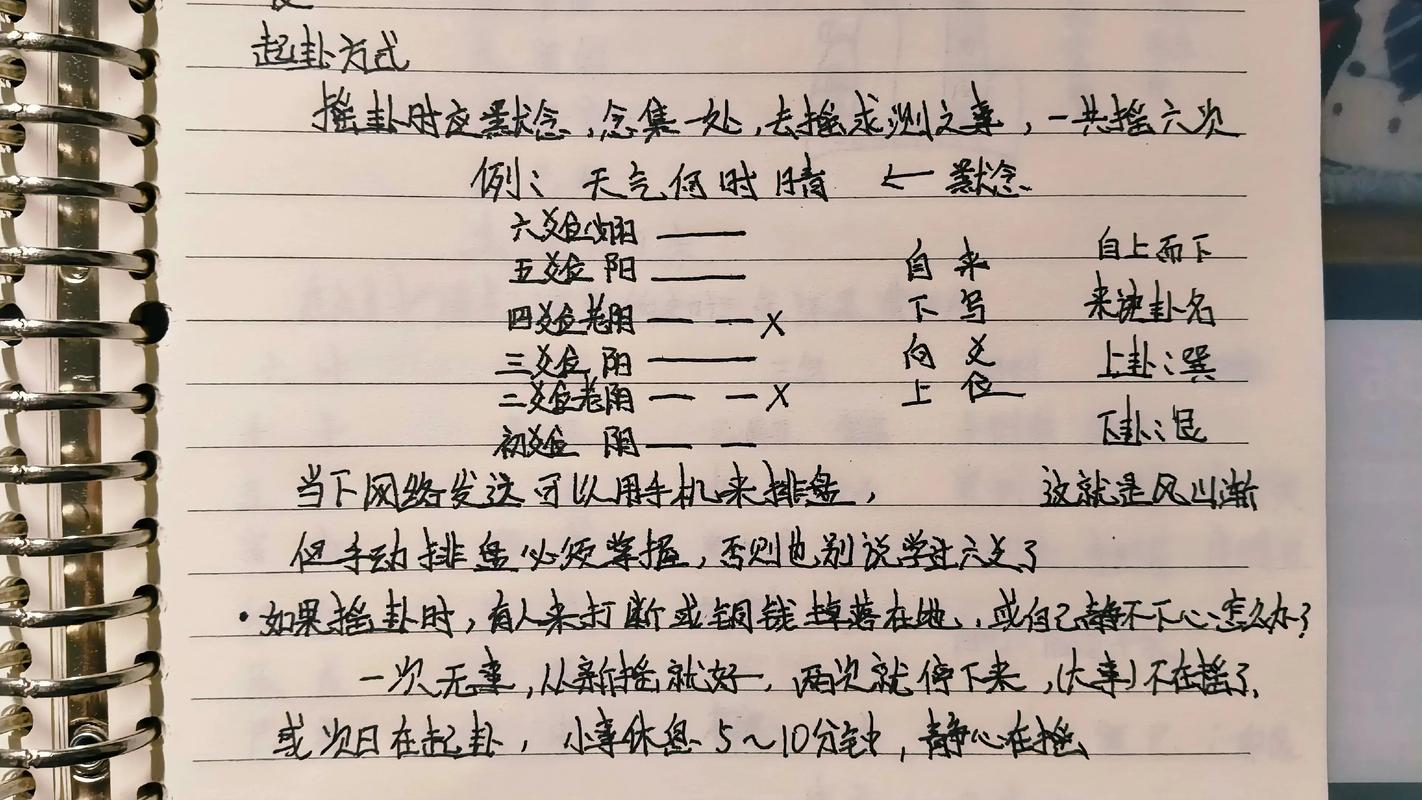 起卦方式
摇卦时应默念，念集一处，去摇求测之事，一共摇六次
例：天气何时晴 ← 默念
六爻位少阳
五爻位 阳
四爻位老阴 X
三爻位 阳
二爻位老阴 X
初爻位 阴
自下向上
来写爻位
自上而下
来读卦名
上卦：巽
下卦：艮
这就是风山渐
当下网络发达可以用手机来排盘，
但手动排盘必须掌握，否则也别说学过六爻了
·如果摇卦时，有人来打断或铜钱掉落在地，或自己静不下心怎么办？
一次无事，从新摇就好，两次就停下来，（大事）不在摇了，
或次日在起卦，小事休息5～10分钟，静心在摇